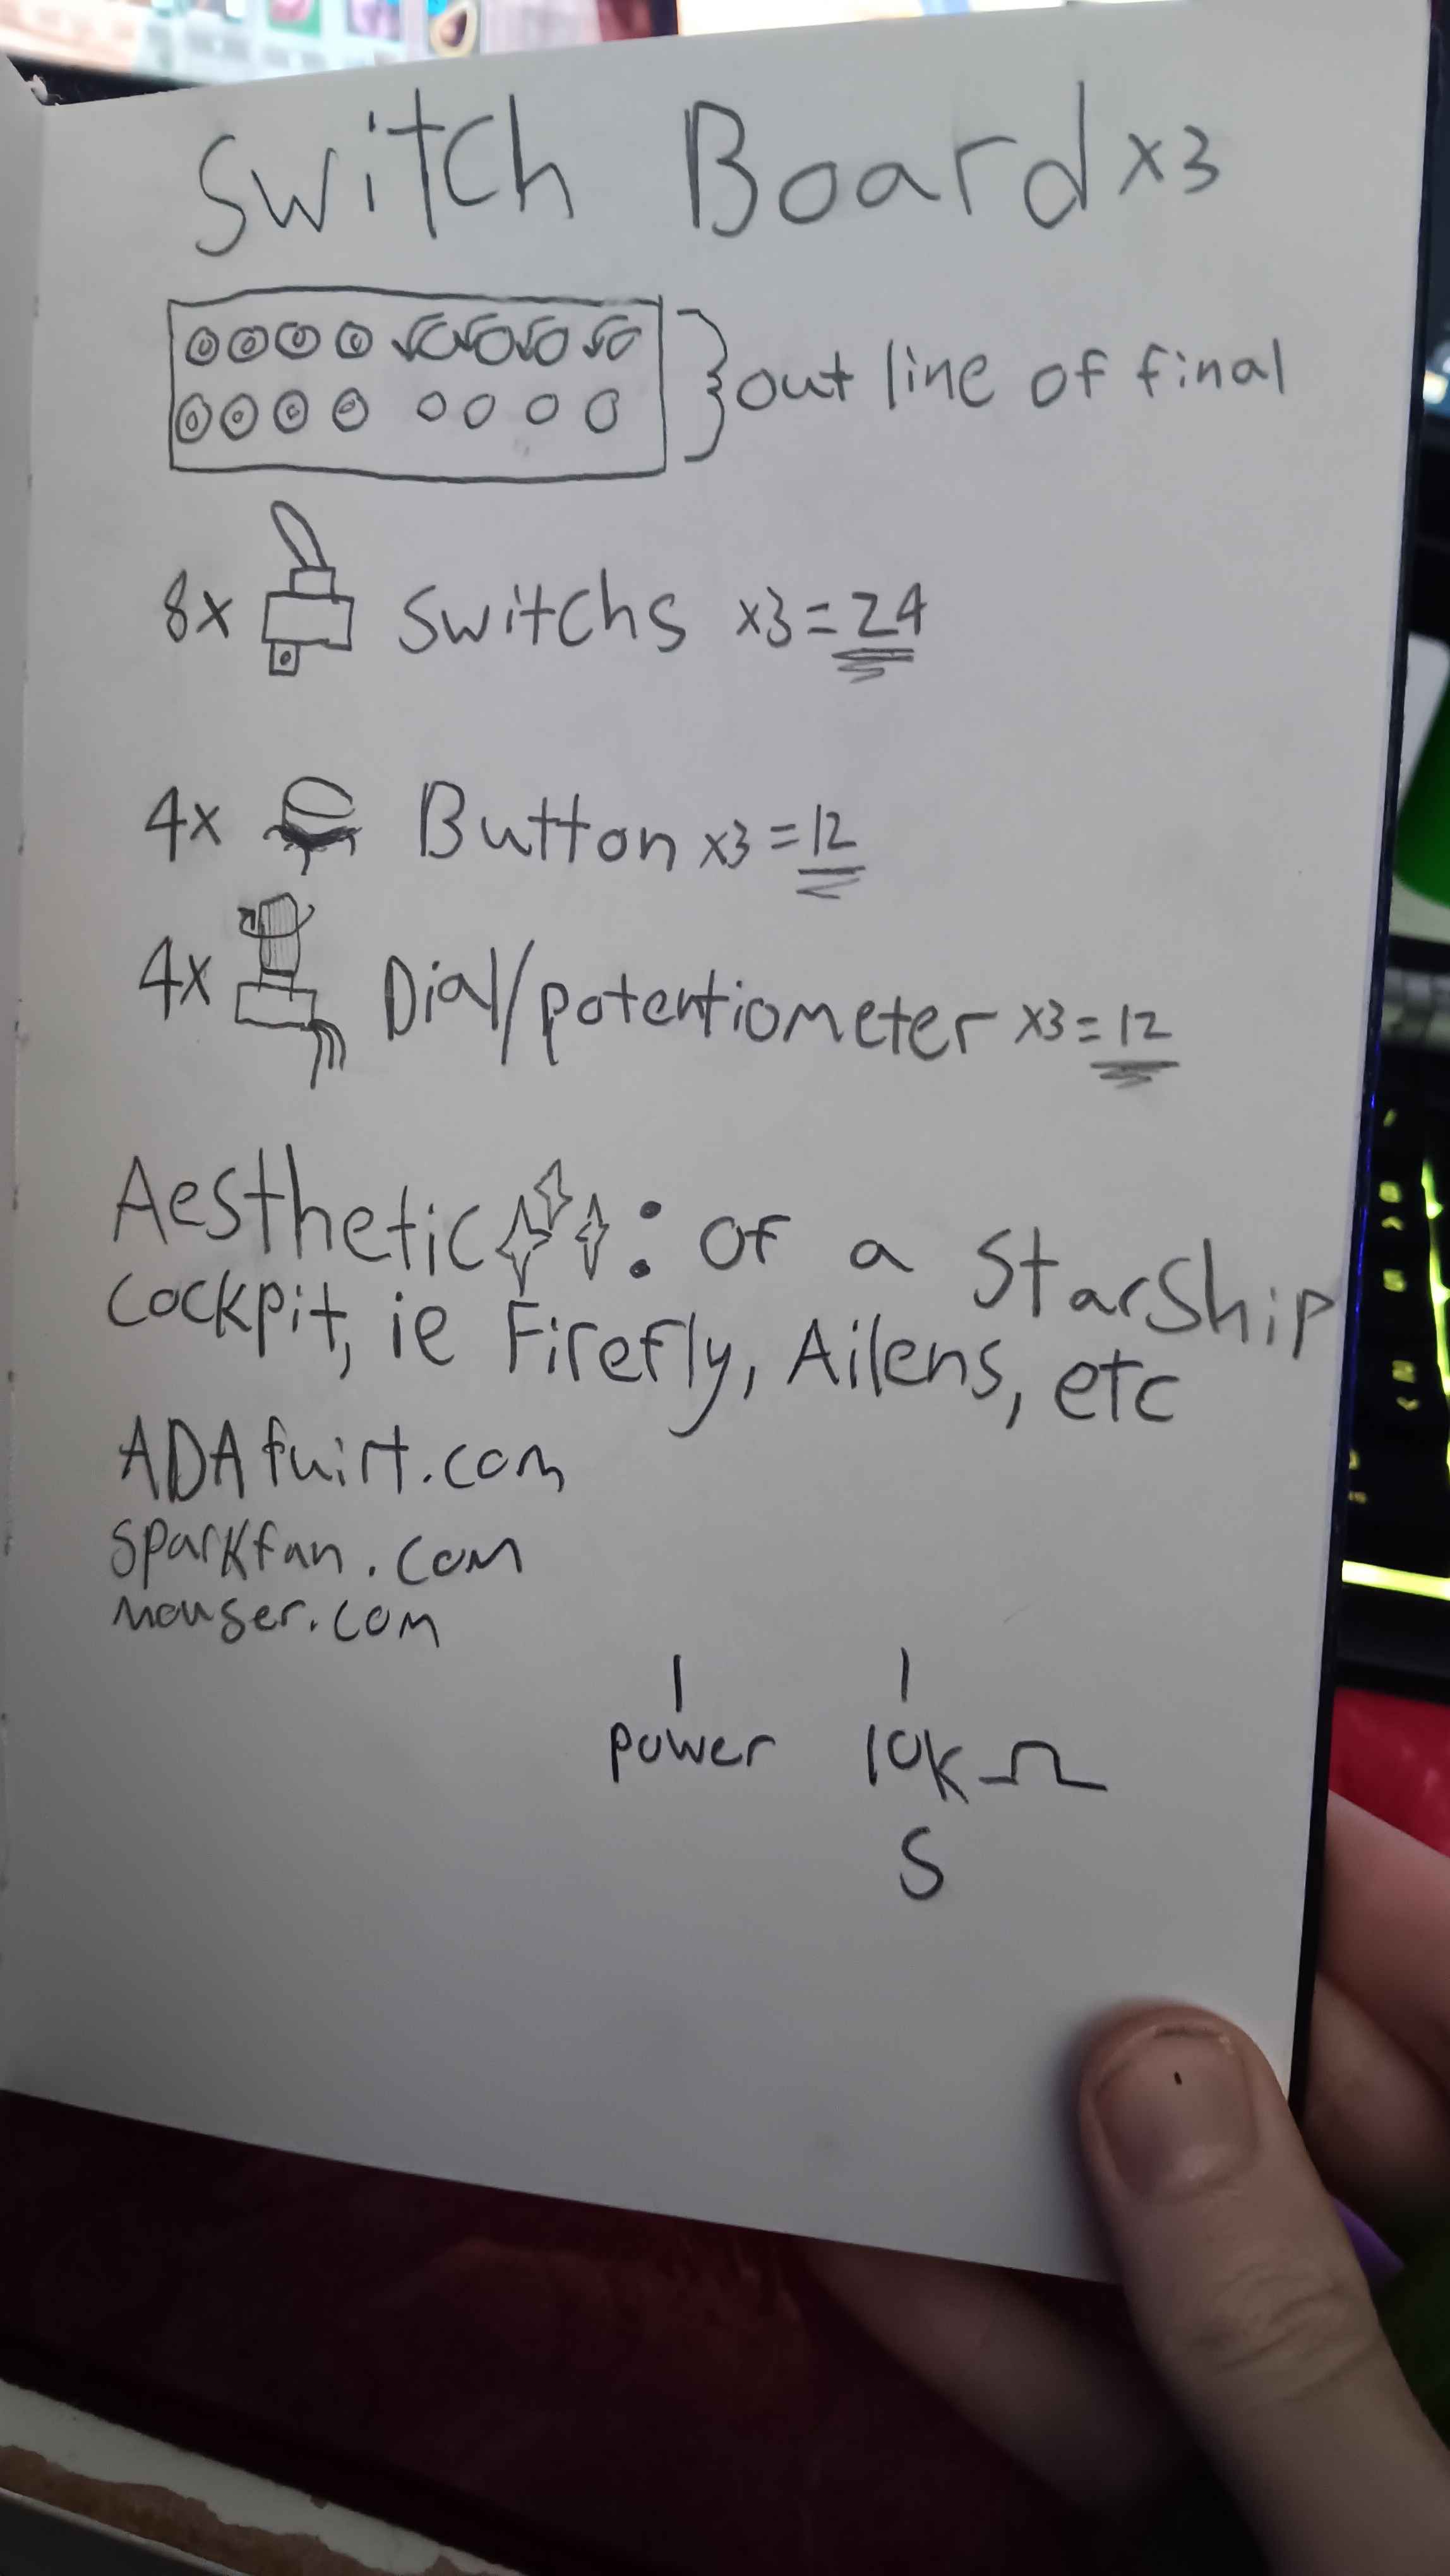 Switch Board x3
out line of final
8x Switchs x3=24
4x Button x3=12
4x Dial/potentiometer x3=12
Aesthetic: of a Starship
Cockpit, ie Firefly, Ailens, etc
ADAfuirt.com
sparkfun.com
mouser.com
power 10k Ω
S